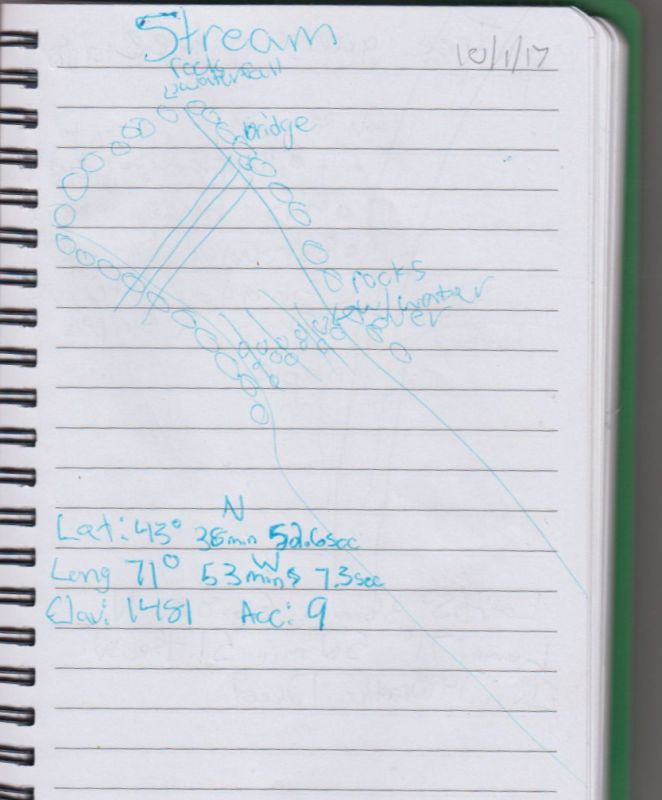 Stream
10/1/17
rock
waterfall
bridge
rocks
w/water
over
N
Lat: 43° 38min 52.6sec
W
Long 71° 53min 7.3sec
Elav: 1481 Acc: 9